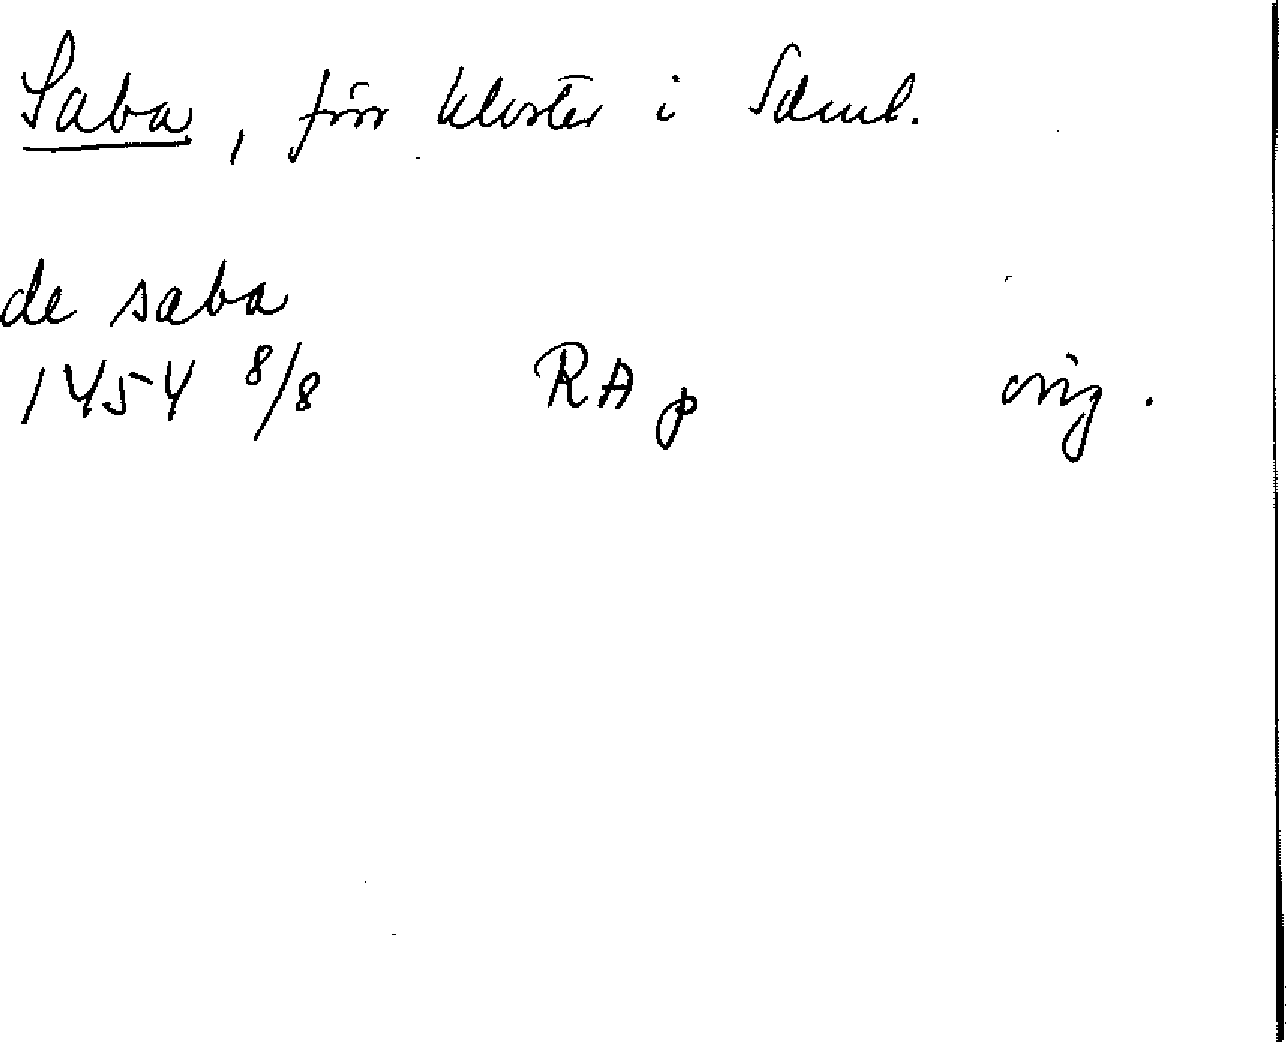 Saba, förr kloster i Söml.
de saba
1454 8/8 RAp orig.